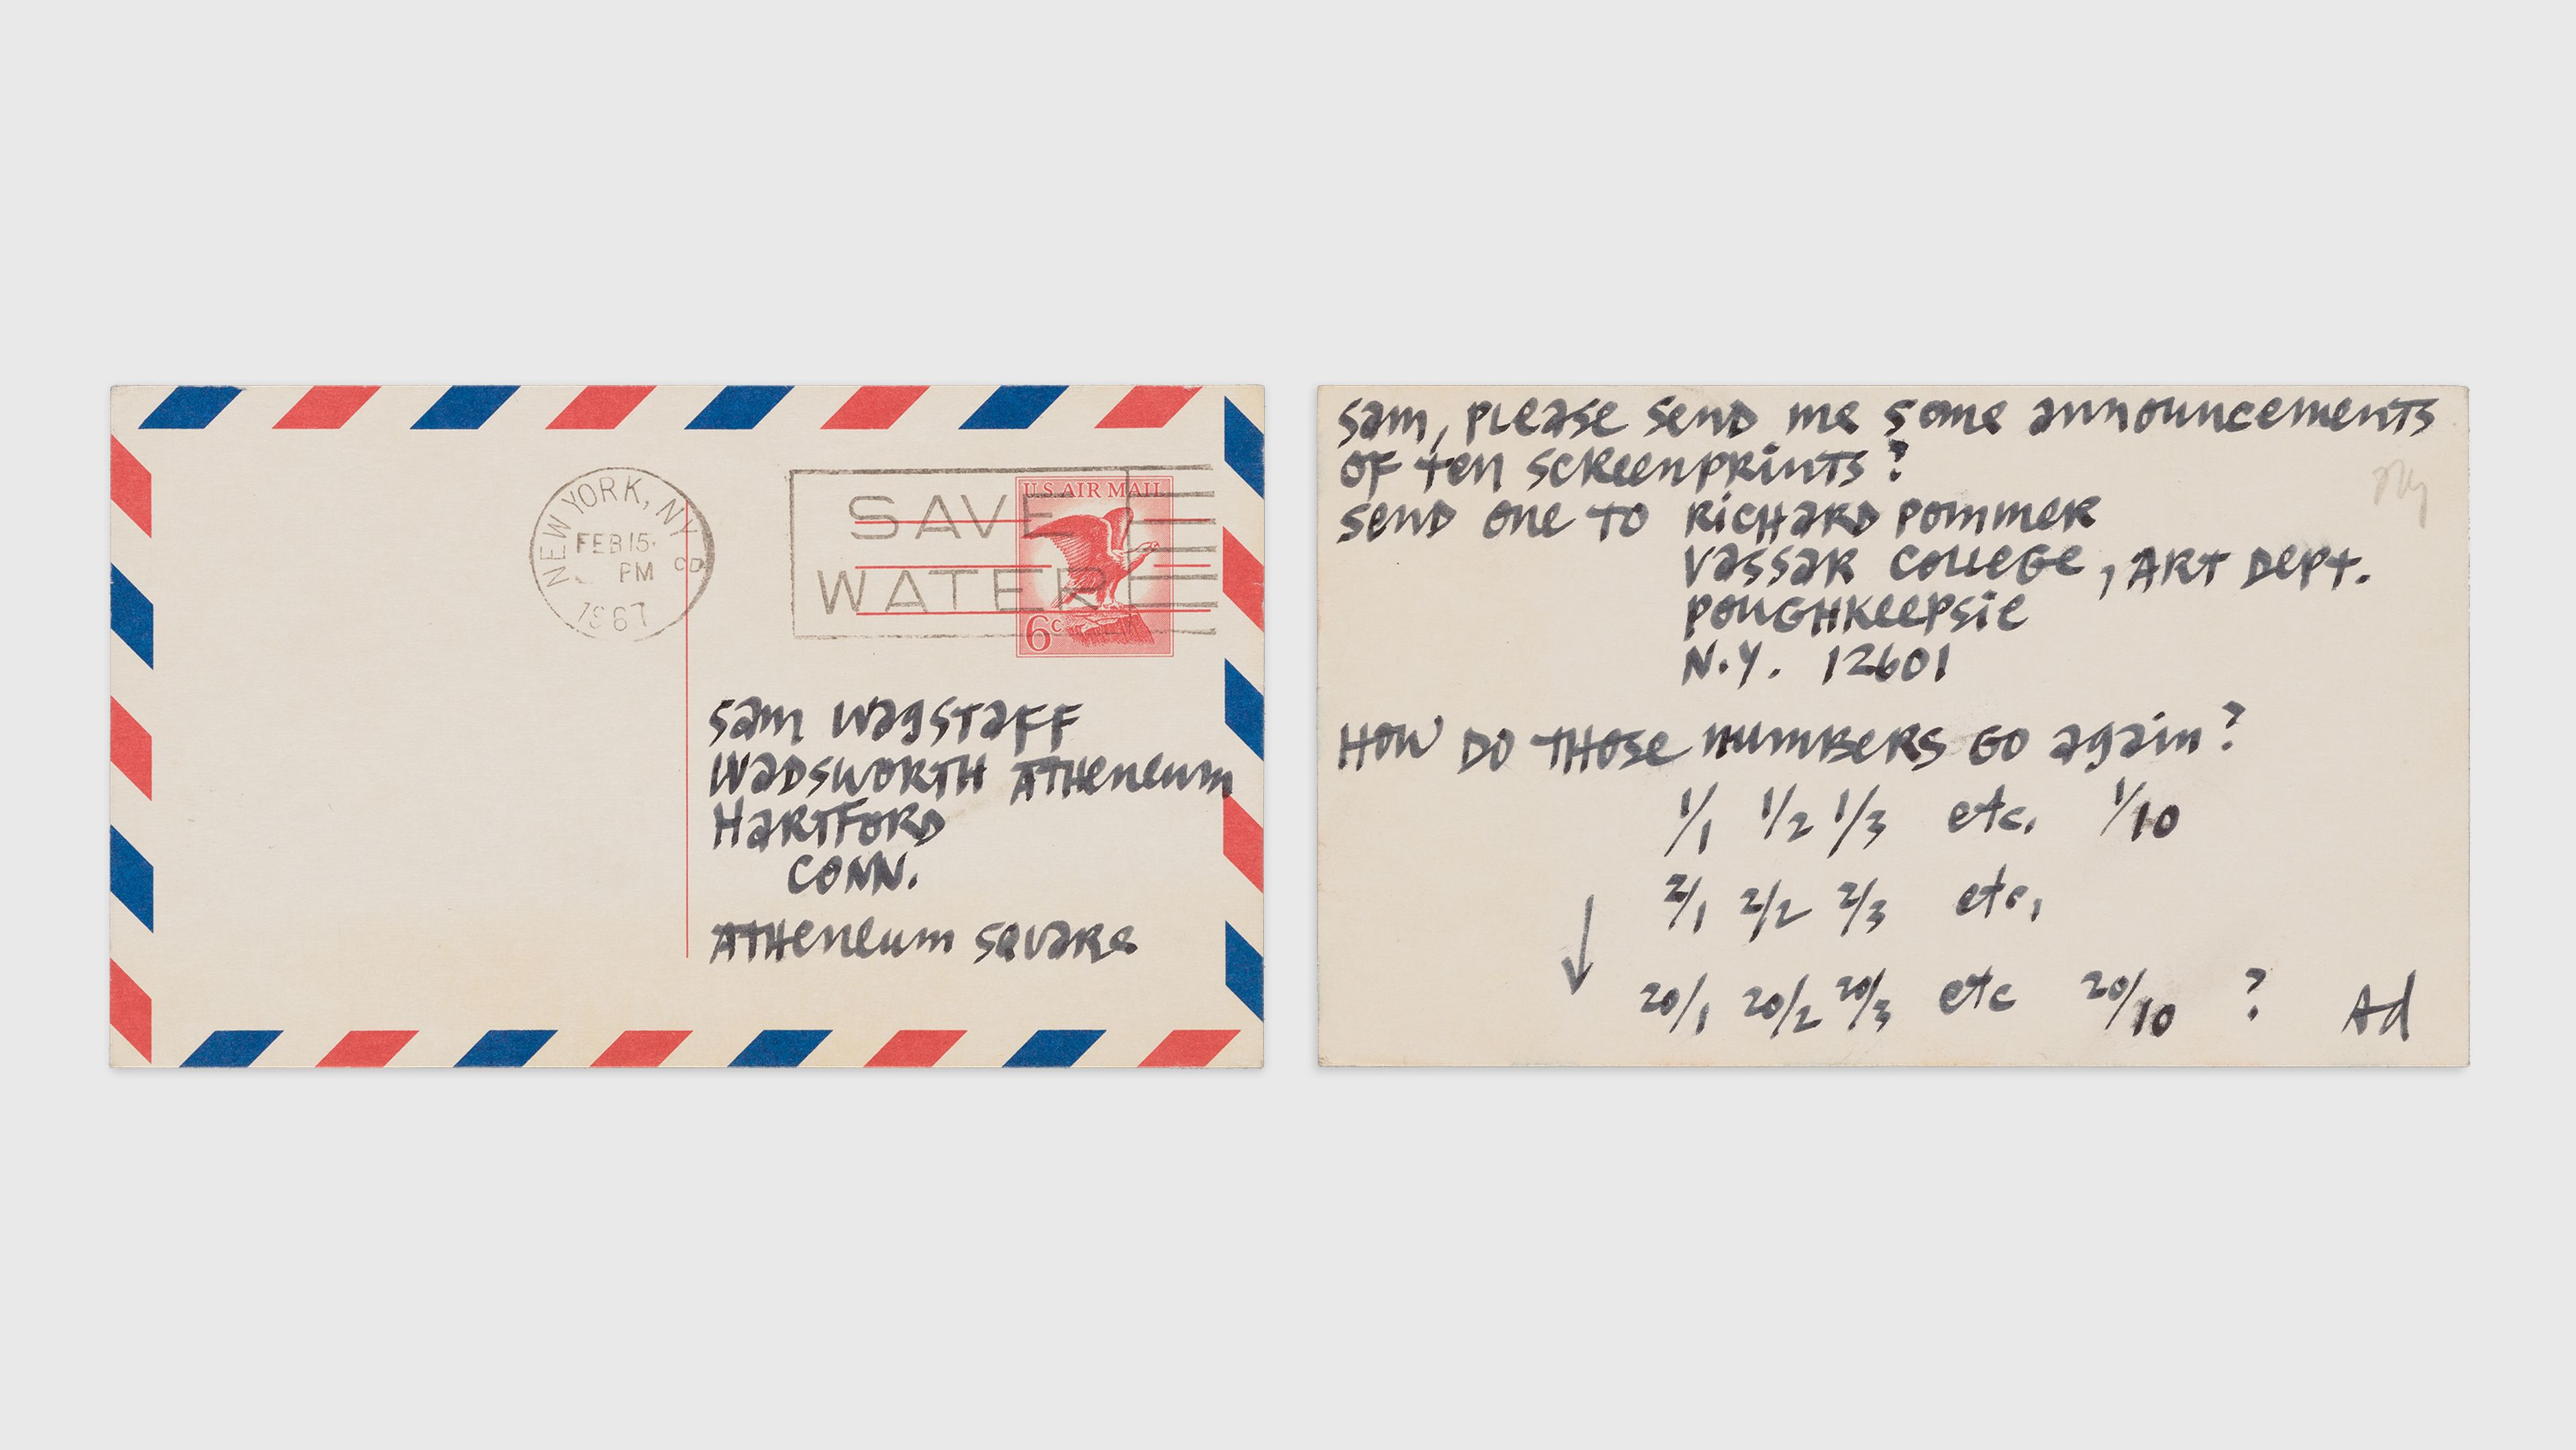 NEW YORK, NY
FEB 15
PM
1967
SAVE
WATER
U.S. AIR MAIL
6c
sam wagstaff
wadsworth Atheneum
Hartford
Conn.
Atheneum square
sam, please send me some announcements
of ten screenprints?
send one to Richard pommer
vassar college, Art Dept.
poughkeepsie
N.Y. 12601
How do those numbers go again?
1/1 1/2 1/3 etc. 1/10
2/1 2/2 2/3 etc,
20/1 20/2 20/3 etc 20/10 ?
Ad